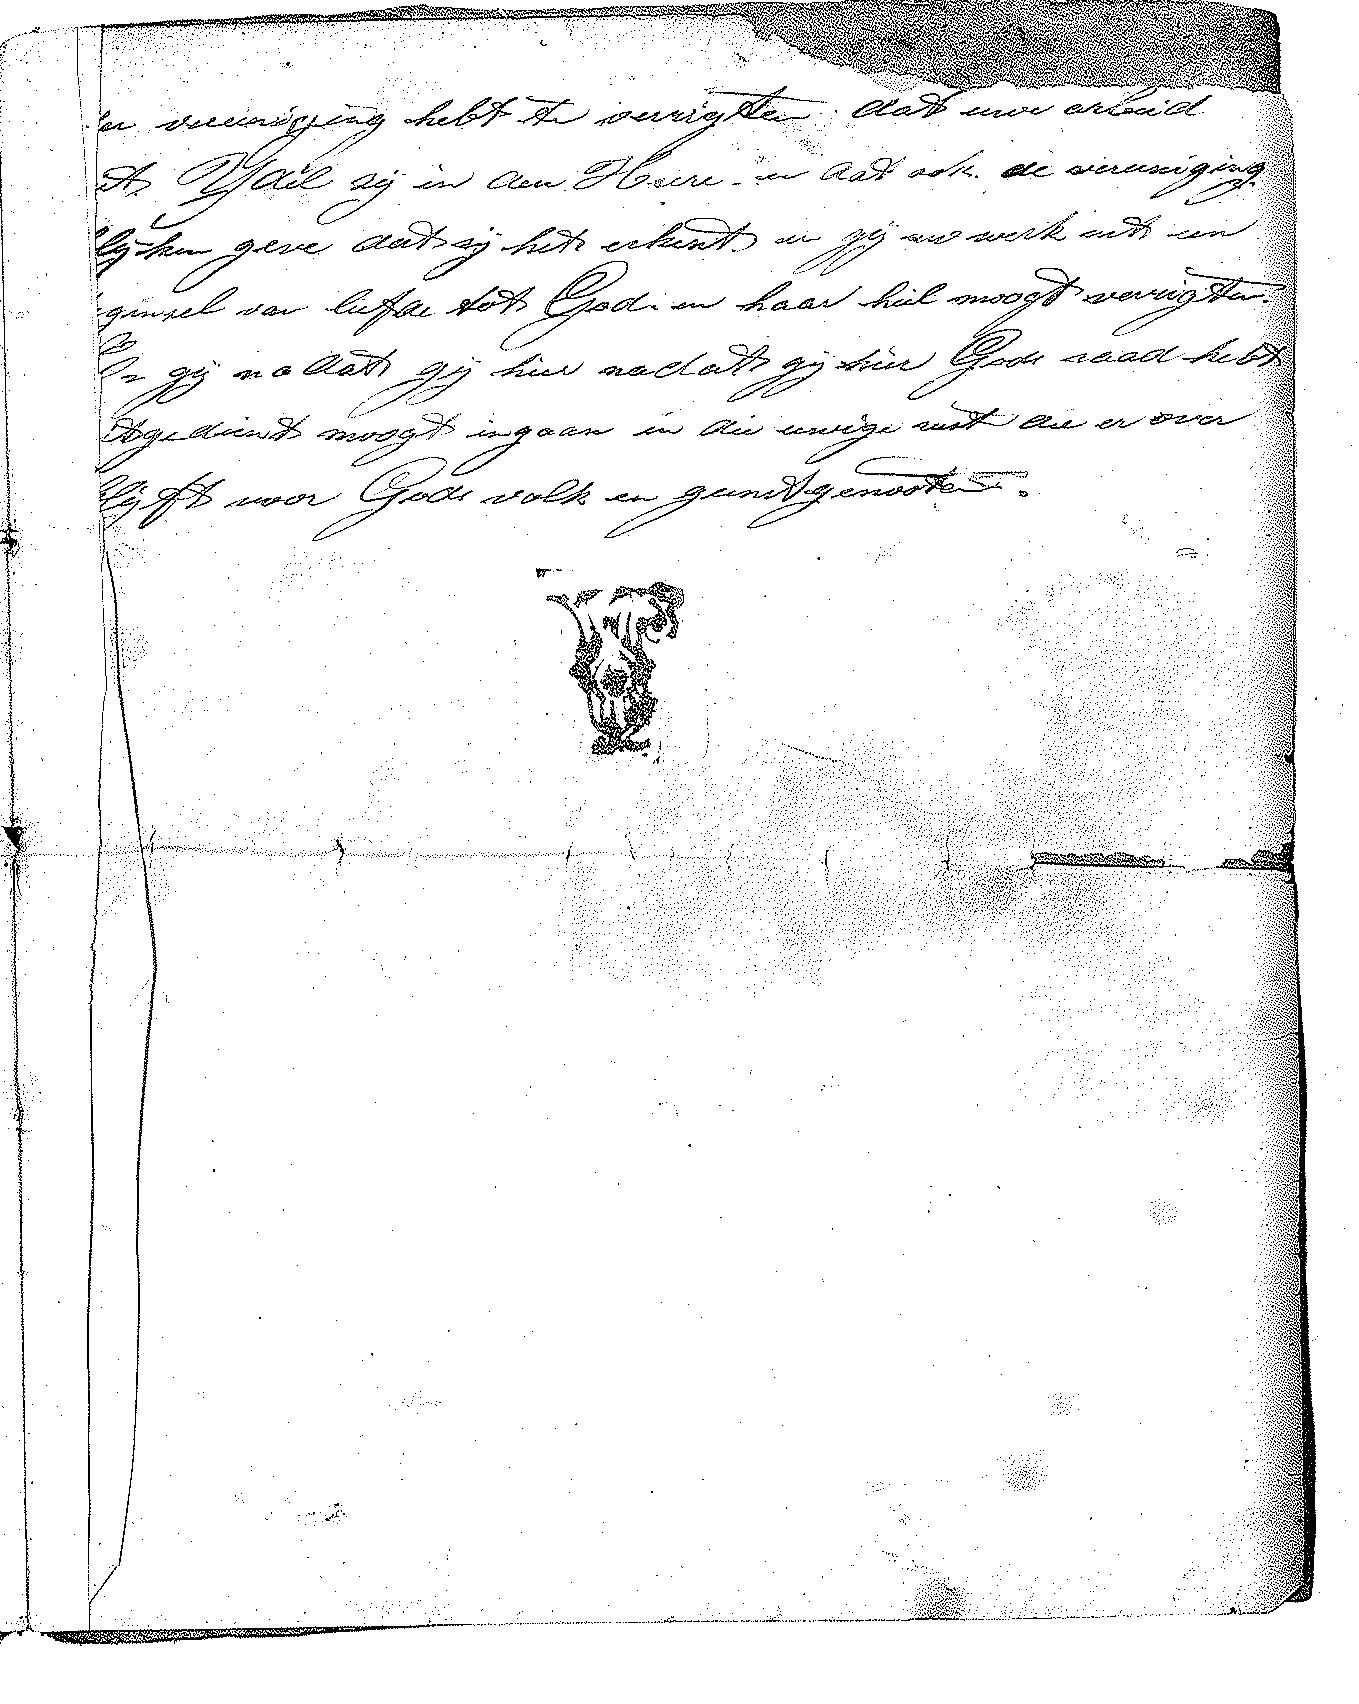 er vereeniging hebt te verrigten. dat uwe arbeid
t Ydel zij in den Heere. en dat ook de vereeniging
lijken geve dat zij het erkent en gij uw werk uit een
ginsel van liefde tot God. en haar heil moogt verrigten.
En gij na dat gij hier nadat gij hier Gods raad hebt
itgedient moogt ingaan in die eewige rust die er over
lijft voor Gods volk en gunstgenooten.